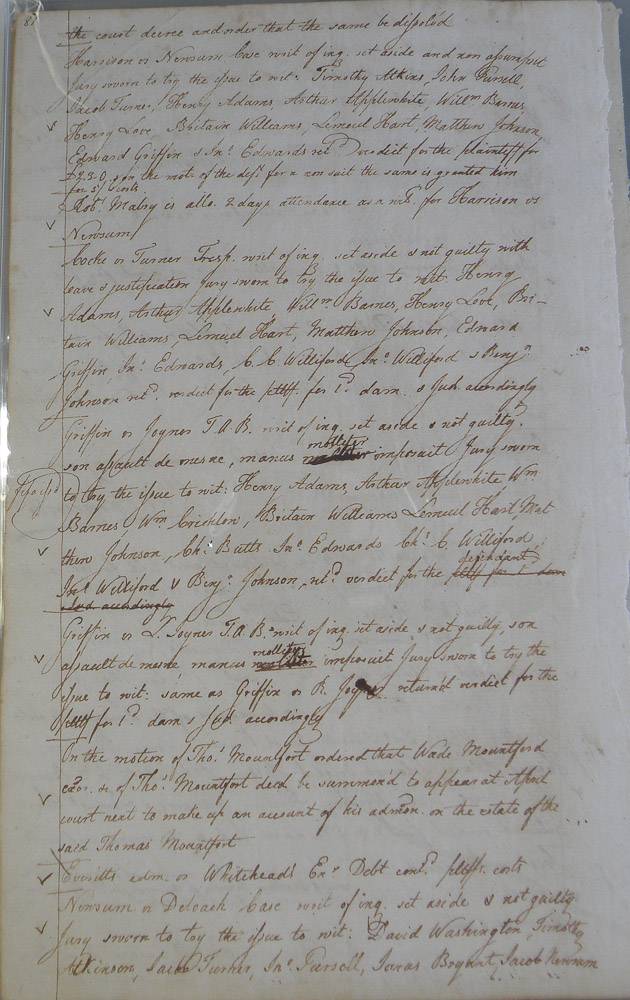 the court decree and order that the same be dissolv'd
Harrison vs Newsum Case writ of inq. set aside and non assumpsit
Jury sworn to try the issue to wit: Timothy Atkins, John Pursell,
Jacob Turner, Henry Adams, Arthur Applewhite, Willm Barnes
Henry Love, Britain Williams, Lemuel Hart, Matthew Johnson
Edward Griffin & Jno. Edwards retd. Verdict for the plaintiff for
on the moto of the deft. for a non suit the same is granted him
for 5/ & costs
Robt. Malry is allo. 2 days attendance as a wit. for Harrison vs
Newsum
Cocke vs Turner Tresp. writ of inq. set aside & not guilty with
leave & justification Jury sworn to try the issue to wit: Henry
Adams, Arthur Applewhite, Willm Barnes, Henry Love, Bri-
tain Williams, Lemuel Hart, Matthew Johnson, Edward
Griffin, Jno. Edwards, C. C. Williford, Jno. Williford & Benja.
Johnson retd. verdict for the pltff. for 1d. dam. & Jud. accordingly
Griffin vs Joyner T. A. B. writ of inq. set aside & not guilty,
son assault de mesne, manus molliter imposuit Jury sworn
to try the issue to wit: Henry Adams, Arthur Applewhite Wm
Barnes Wm. Crichlow, Britain Williams Lemuel Hart Mat
thew Johnson, Chs. Butts Jno. Edwards Chs. C. Williford
Jno. Williford & Benja. Johnson, retd. verdict for the pltff for 1d dam defendant
& Jud accordingly
Griffin vs L. Joyner T. A. B. writ of inq. set aside & not guilty, son
assault de mesne manus molliter imposuit Jury sworn to try the
issue to wit: same as Griffin vs R. Joyner return'd verdict for the
pltff for 1d. dam & Jud. accordingly
On the motion of Thos. Mountfort ordered that Wade Mountford
exor. &c of Thos. Mountfort decd be summon'd to appear at April
court next to make up an account of his admon. on the estate of the
said Thomas Mountfort
Everitts adm. vs Whitehead's Exr. Debt contd. pltffs. costs
Newsum vs Deloach Case writ of inq. set aside & not guilty
Jury sworn to try the issue to wit: David Washington, Timothy
Atkinson, Jacob Turner, Jno. Pursell, Jonas Bryant, Jacob Newsum